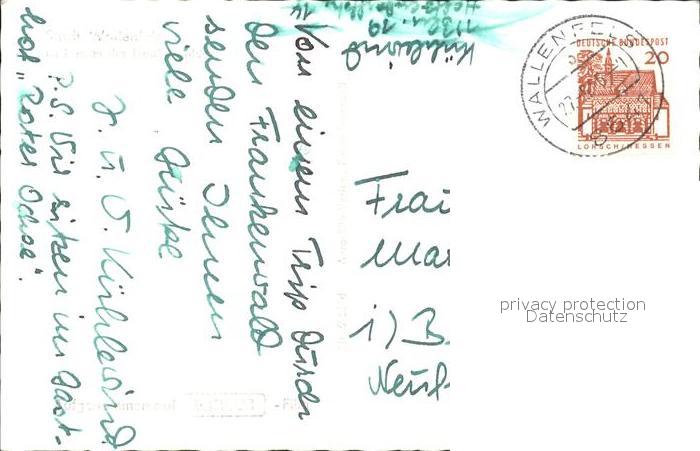 Kühlewind
1 Bln. 19
14
Von einem Trip durch
den Frankenwald
senden Ihnen
viele Grüße
J. u. V. Kühlewind
P.S. Wir sitzen im Gast-
hof „Roter Ochse".
Frau
Mar
1) B
Neuf
WALLENFELS
DEUTSCHE BUNDESPOST
20
LORSCH/HESSEN
privacy protection
Datenschutz